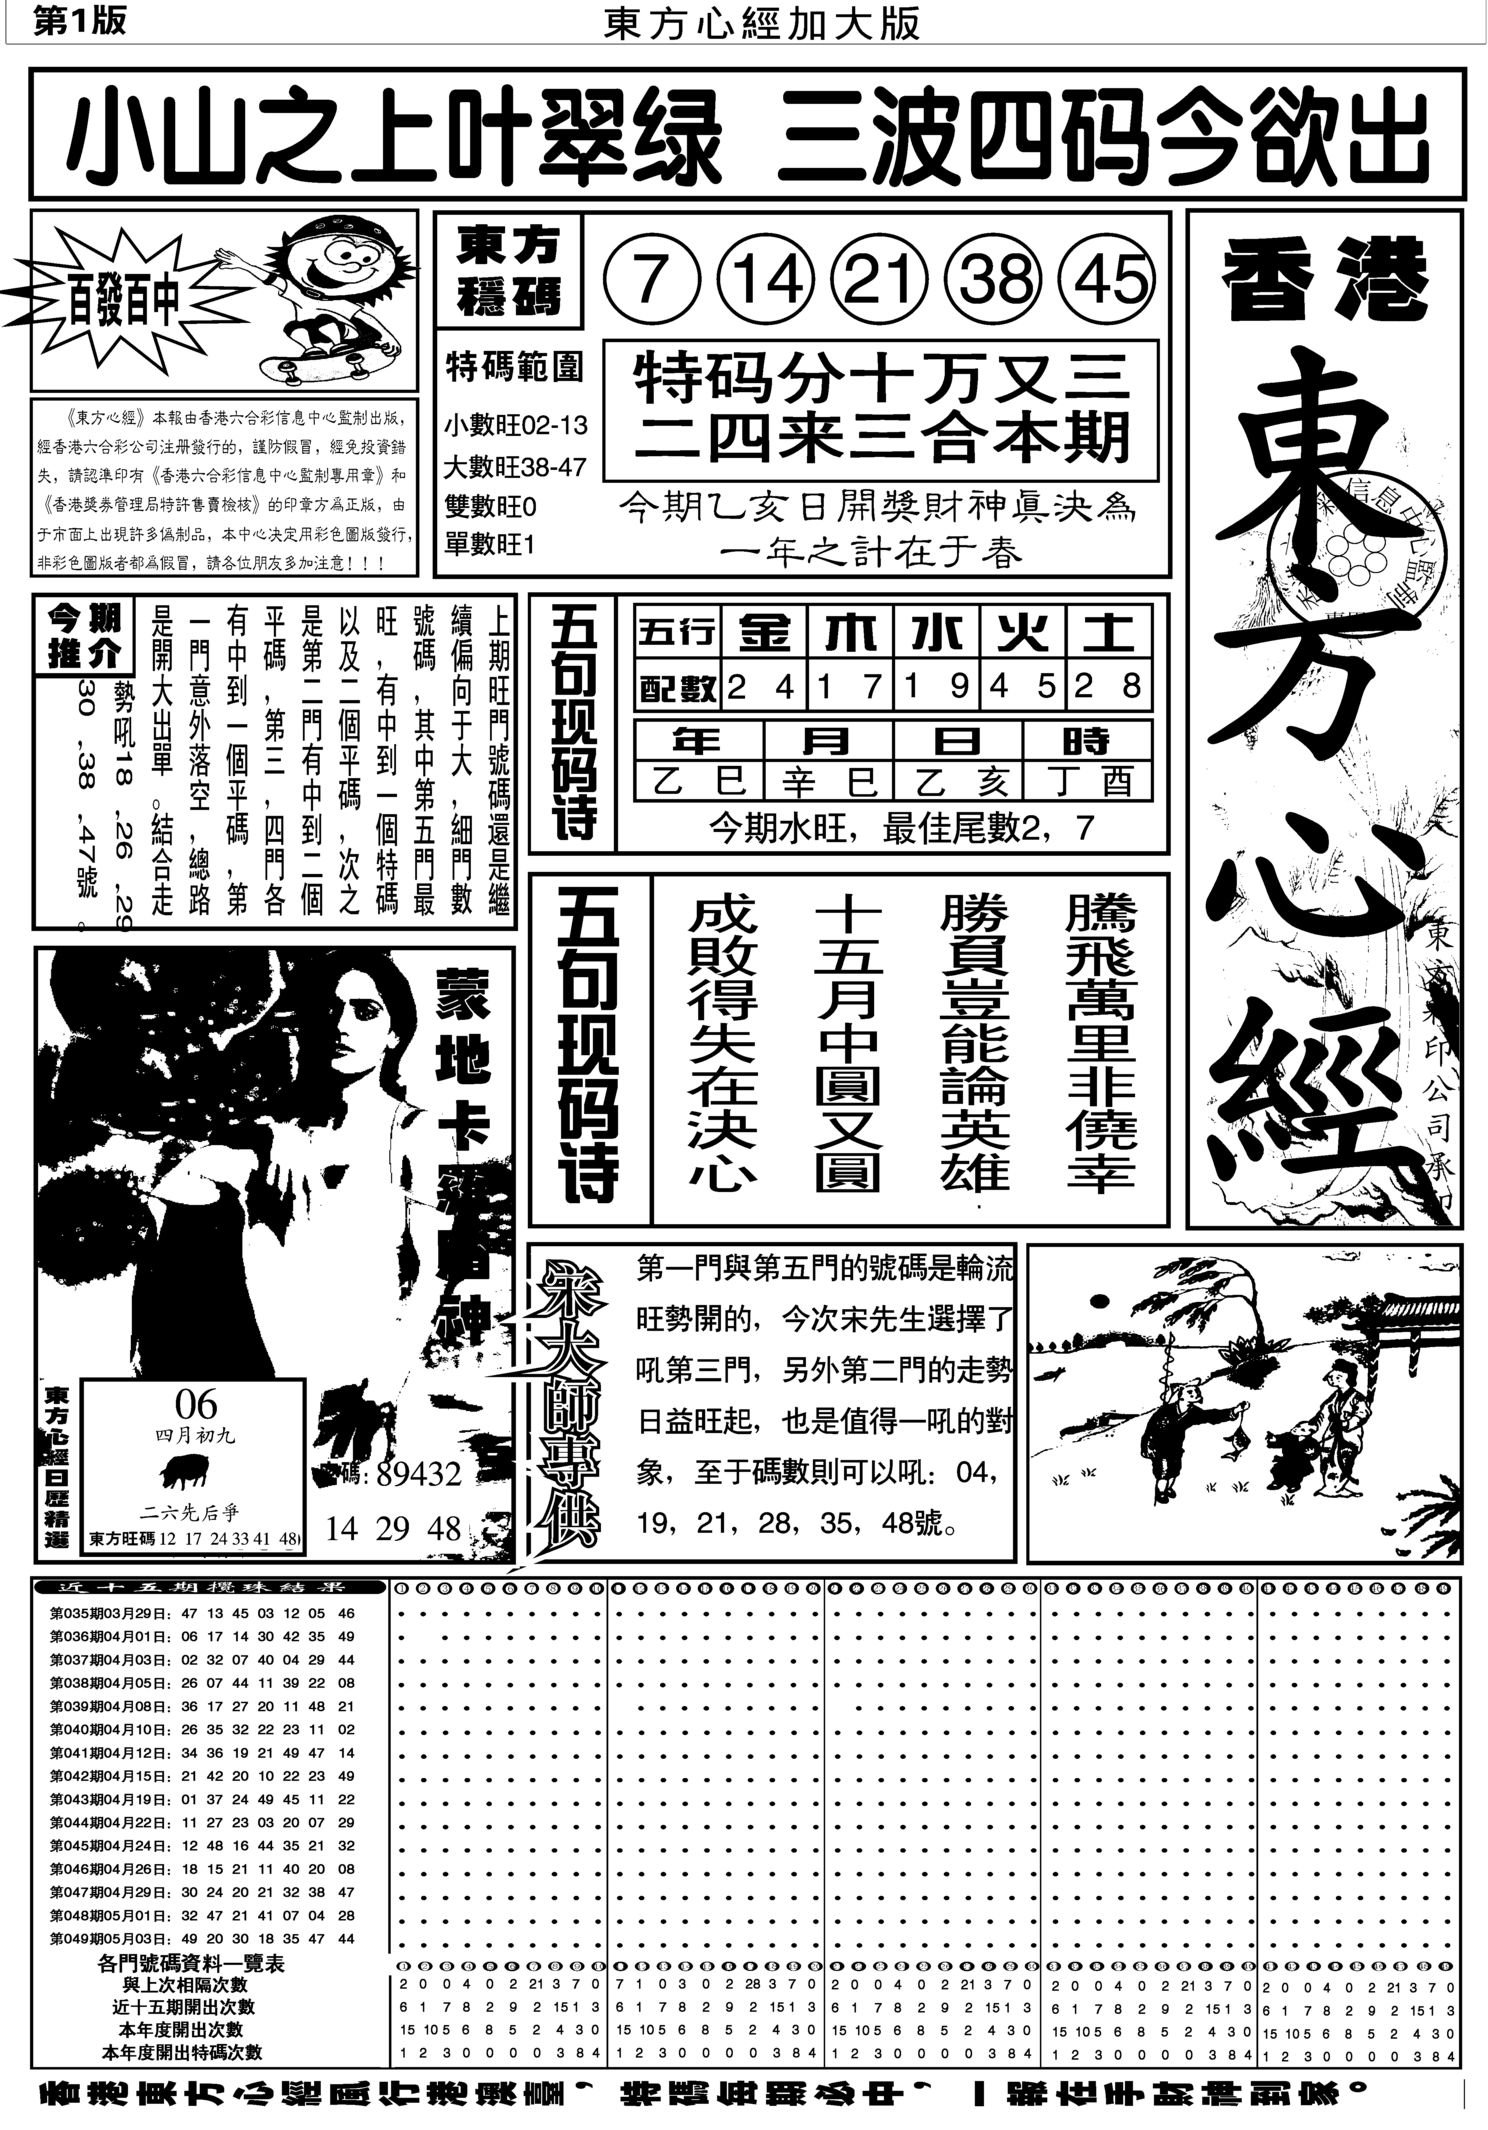 第1版
東方心經加大版
小山之上叶翠绿 三波四码今欲出
百發百中
《東方心經》本報由香港六合彩信息中心監制出版，
經香港六合彩公司注册發行的，謹防假冒，經免投資錯
失，請認準印有《香港六合彩信息中心監制專用章》和
《香港獎券管理局特許售賣檢核》的印章方爲正版，由
于市面上出現許多僞制品，本中心决定用彩色圖版發行，
非彩色圖版者都爲假冒，請各位朋友多加注意！！！
東方
穩碼
7 14 21 38 45
特碼範圍
小數旺02-13
大數旺38-47
雙數旺0
單數旺1
特码分十万又三
二四来三合本期
今期乙亥日開獎財神眞決為
一年之計在于春
香港
東方心經
信息中心監制
印公司承印
今期
推介
上期旺門號碼還是繼
續偏向于大，細門數
號碼，其中第五門最
旺，有中到一個特碼
以及二個平碼，次之
是第二門有中到二個
平碼，第三，四門各
有中到一個平碼，第
一門意外落空，總路
是開大出單。結合走
勢吼18，26，29
30，38，47號。
五句现码诗
五行 金 木 水 火 土
配數 2 4 1 7 1 9 4 5 2 8
年 月 日 時
乙巳 辛巳 乙亥 丁酉
今期水旺，最佳尾數2，7
五句现码诗
騰飛萬里非僥幸
勝負豈能論英雄
十五月中圓又圓
成敗得失在決心
蒙地卡羅賭神
東方心經日歷精選
06
四月初九
二六先后爭
東方旺碼 12 17 24 33 41 48
碼：89432
14 29 48
宋大師專供
第一門與第五門的號碼是輪流
旺勢開的，今次宋先生選擇了
吼第三門，另外第二門的走勢
日益旺起，也是值得一吼的對
象，至于碼數則可以吼：04，
19，21，28，35，48號。
近十五期攪珠結果
第035期03月29日：47 13 45 03 12 05 46
第036期04月01日：06 17 14 30 42 35 49
第037期04月03日：02 32 07 40 04 29 44
第038期04月05日：26 07 44 11 39 22 08
第039期04月08日：36 17 27 20 11 48 21
第040期04月10日：26 35 32 22 23 11 02
第041期04月12日：34 36 19 21 49 47 14
第042期04月15日：21 42 20 10 22 23 49
第043期04月19日：01 37 24 49 45 11 22
第044期04月22日：11 27 23 03 20 07 29
第045期04月24日：12 48 16 44 35 21 32
第046期04月26日：18 15 21 11 40 20 08
第047期04月29日：30 24 20 21 32 38 47
第048期05月01日：32 47 21 41 07 04 28
第049期05月03日：49 20 30 18 35 47 44
各門號碼資料一覽表
與上次相隔次數 2 0 0 4 0 2 21 3 7 0 7 1 0 3 0 2 28 3 7 0 2 0 0 4 0 2 21 3 7 0 2 0 0 4 0 2 21 3 7 0 2 0 0 4 0 2 21 3 7 0
近十五期開出次數 6 1 7 8 2 9 2 15 1 3 6 1 7 8 2 9 2 15 1 3 6 1 7 8 2 9 2 15 1 3 6 1 7 8 2 9 2 15 1 3 6 1 7 8 2 9 2 15 1 3
本年度開出次數 15 10 5 6 8 5 2 4 3 0 15 10 5 6 8 5 2 4 3 0 15 10 5 6 8 5 2 4 3 0 15 10 5 6 8 5 2 4 3 0 15 10 5 6 8 5 2 4 3 0
本年度開出特碼次數 1 2 3 0 0 0 0 3 8 4 1 2 3 0 0 0 0 3 8 4 1 2 3 0 0 0 0 3 8 4 1 2 3 0 0 0 0 3 8 4 1 2 3 0 0 0 0 3 8 4
香港東方心經風行港澳臺，特碼每期必中，一報在手財神到家。